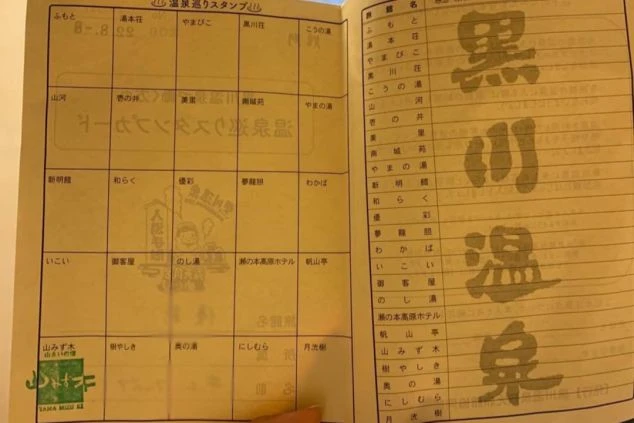 ♨温泉巡りスタンプ♨
ふもと 湯本荘 やまびこ 黒川荘 こうの湯
山河 壱の井 美里 南城苑 やまの湯
新明館 和らく 優彩 夢龍胆 わかば
いこい 御客屋 のし湯 瀬の本高原ホテル 帆山亭
山みず木 樹やしき 奥の湯 にしむら 月洸樹
山あいの宿
山みず木
YAMA MIZU KI
旅館名
ふもと
湯本荘
やまびこ
黒川荘
こうの湯
山河
壱の井
美里
南城苑
やまの湯
新明館
和らく
優彩
夢龍胆
わかば
いこい
御客屋
のし湯
瀬の本高原ホテル
帆山亭
山みず木
樹やしき
奥の湯
にしむら
月洸樹
黒川温泉